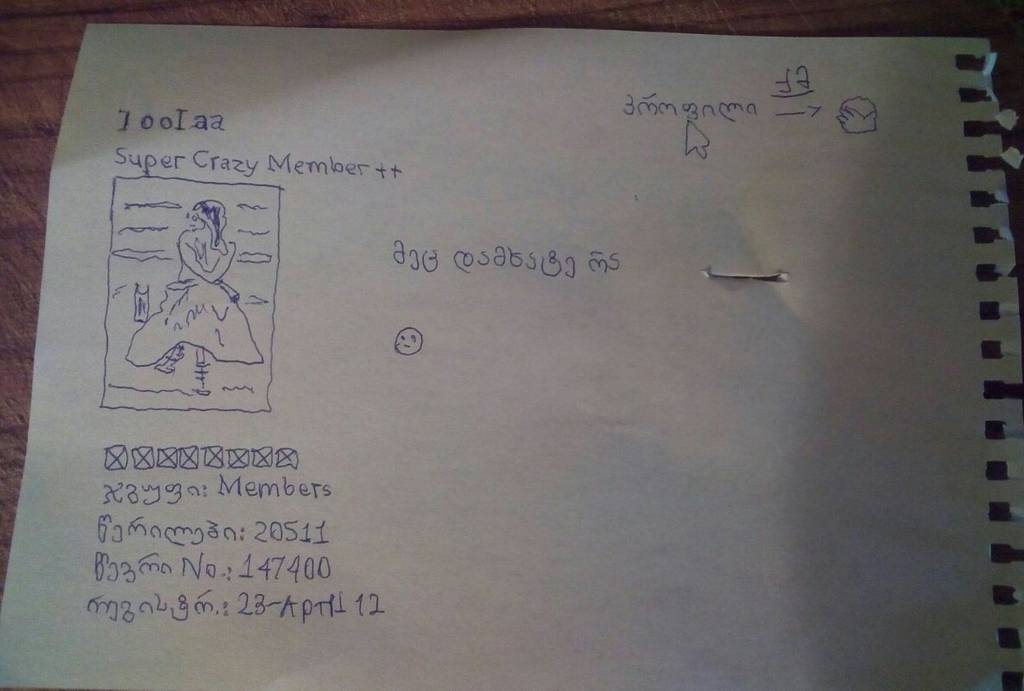 JooIaa
Super Crazy Member++
პროფილი
მეც დამხატე რა
ჯგუფი: Members
წერილები: 20511
წევრი No.: 147400
რეგისტრ.: 23-April 12